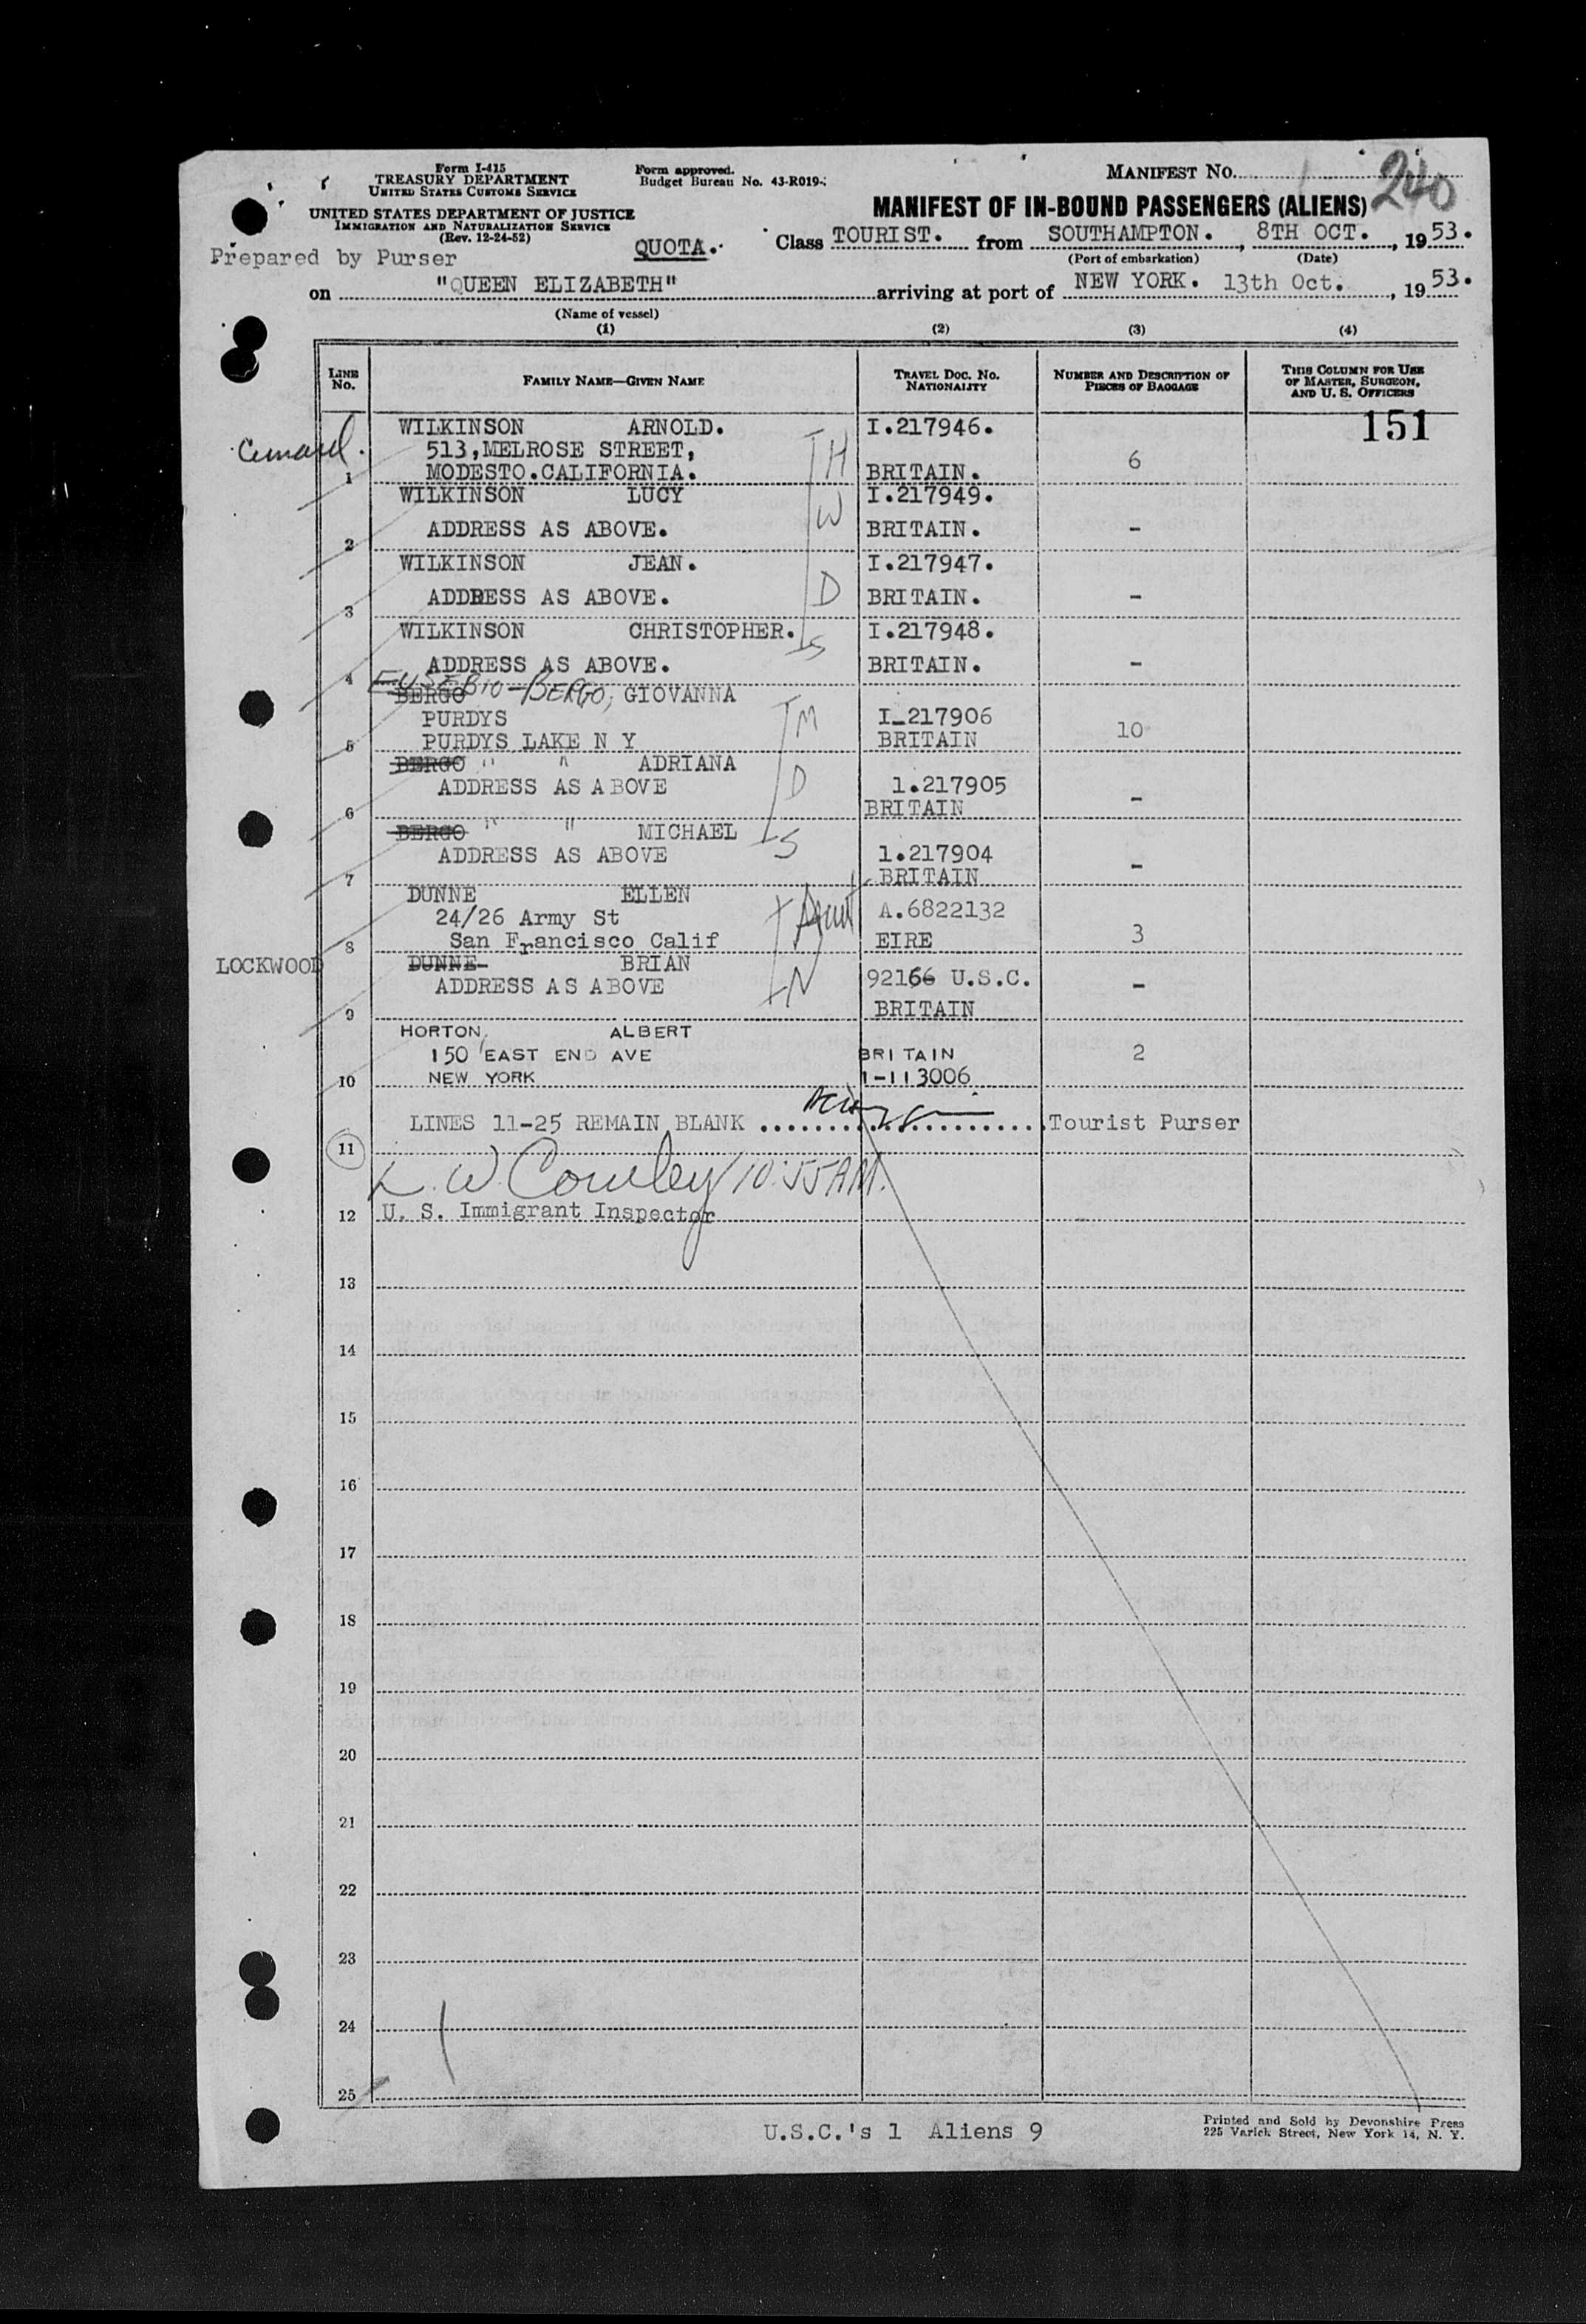 Form I-415
TREASURY DEPARTMENT
UNITED STATES CUSTOMS SERVICE
UNITED STATES DEPARTMENT OF JUSTICE
IMMIGRATION AND NATURALIZATION SERVICE
(Rev. 12-24-52)
Form approved.
Budget Bureau No. 43-R019-
MANIFEST NO.
240
MANIFEST OF IN-BOUND PASSENGERS (ALIENS)
Prepared by Purser
QUOTA.
Class TOURIST. from SOUTHAMPTON. , 8TH OCT. , 1953.
(Port of embarkation) (Date)
on "QUEEN ELIZABETH" arriving at port of NEW YORK. 13th Oct. , 1953.
(Name of vessel)
(1) (2) (3) (4)
LINE NO.
FAMILY NAME—GIVEN NAME
TRAVEL DOC. NO. NATIONALITY
NUMBER AND DESCRIPTION OF PIECES OF BAGGAGE
THIS COLUMN FOR USE OF MASTER, SURGEON, AND U. S. OFFICERS
151
WILKINSON ARNOLD. I.217946.
513,MELROSE STREET, H 6
1 MODESTO.CALIFORNIA. BRITAIN.
WILKINSON LUCY I.217949.
W
2 ADDRESS AS ABOVE. BRITAIN. -
WILKINSON JEAN. I.217947.
3 ADDRESS AS ABOVE. D BRITAIN. -
WILKINSON CHRISTOPHER. S I.217948.
4 ADDRESS AS ABOVE. BRITAIN. -
EUSEBIO-BERGO,
BERGO GIOVANNA
PURDYS M I-217906 10
5 PURDYS LAKE N Y BRITAIN
BERGO " " ADRIANA
ADDRESS AS ABOVE D 1.217905
6 BRITAIN -
BERGO " " MICHAEL
ADDRESS AS ABOVE S 1.217904
7 BRITAIN -
DUNNE ELLEN
24/26 Army St Aunt A.6822132
8 San Francisco Calif EIRE 3
LOCKWOOD DUNNE BRIAN
ADDRESS AS ABOVE N 92166 U.S.C. -
9 BRITAIN
HORTON, ALBERT
150 EAST END AVE BRITAIN 2
10 NEW YORK 1-113006
LINES 11-25 REMAIN BLANK ........................Tourist Purser
11
L. W. Cowley 10:55AM.
12 U. S. Immigrant Inspector
13
14
15
16
17
18
19
20
21
22
23
24
25
U.S.C.'s 1 Aliens 9
Printed and Sold by Devonshire Press
225 Varick Street, New York 14, N. Y.